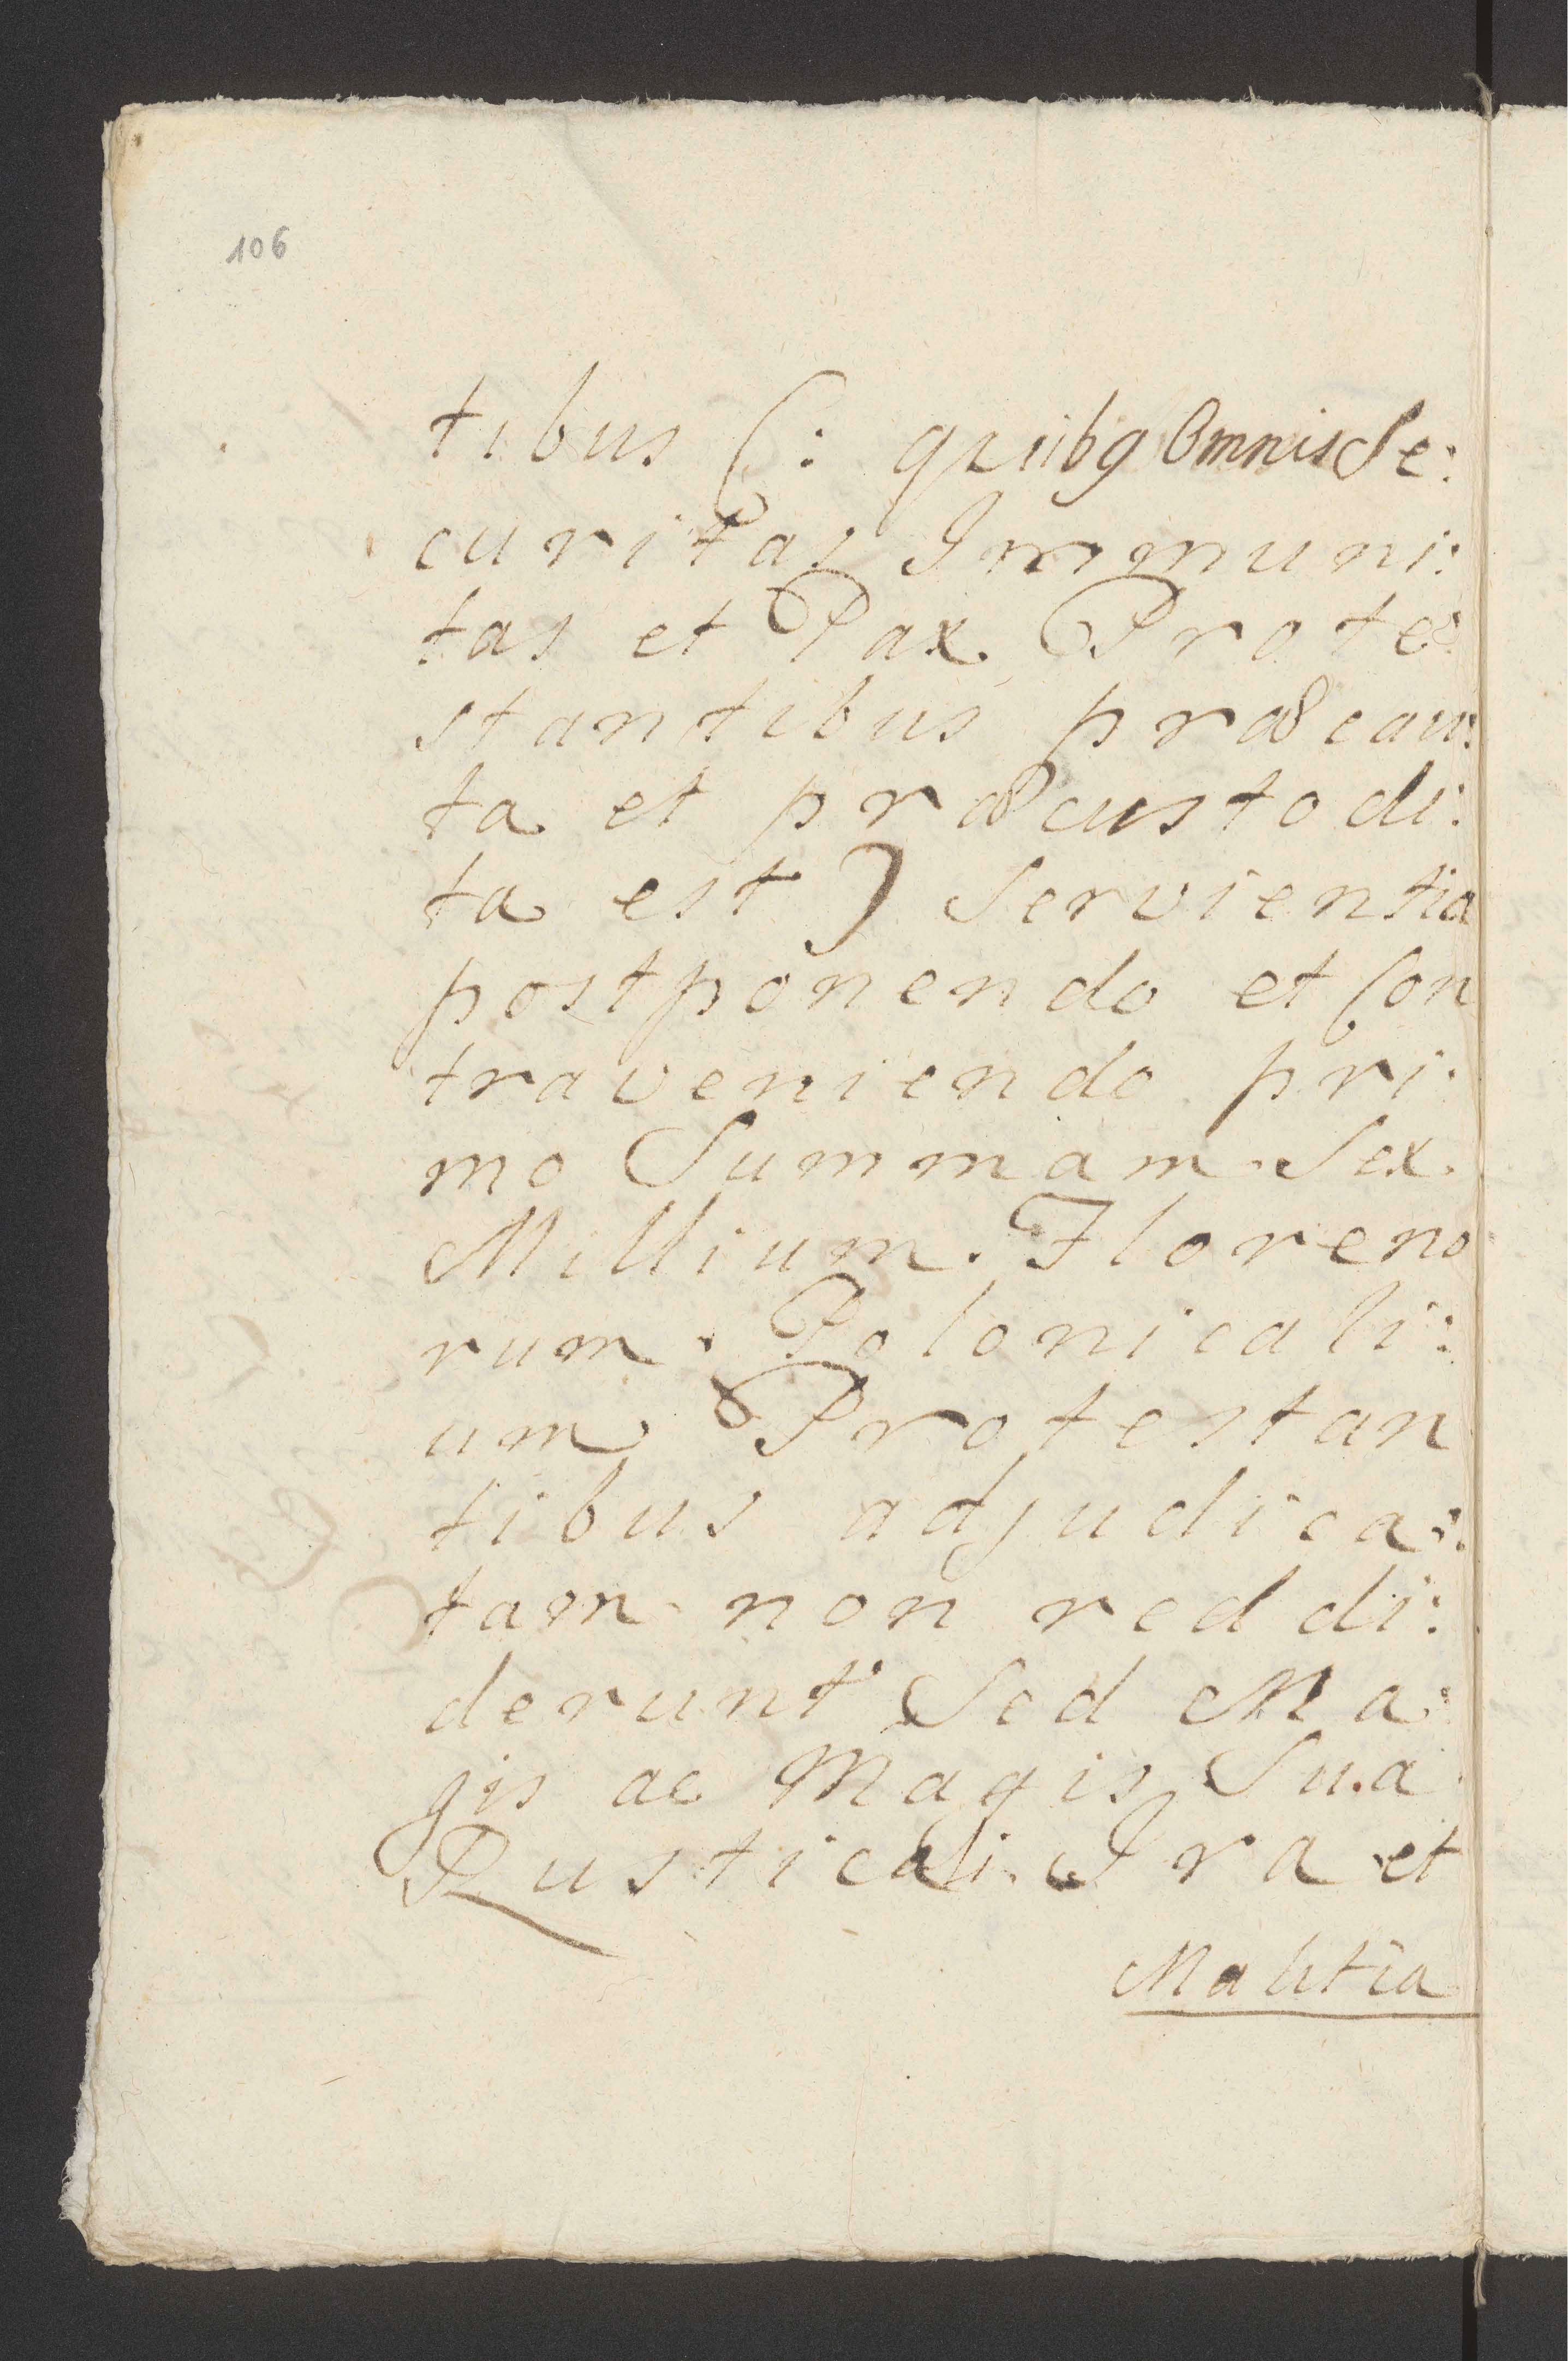 106
tibus (: quibq Omnis Se:
curitas Immuni:
tas et Pax Prote:
stantibus præcau:
ta et præcustodi:
ta est) Servientia
postponendo et Con
traveniendo pri:
mo Summam Sex
Millium. Floreno
rum. Polonicali:
um Protestan
tibus adjudica:
tam non reddi:
derunt Sed Ma:
gis ac Magis Sua
Rusticali Ira et
Malitia